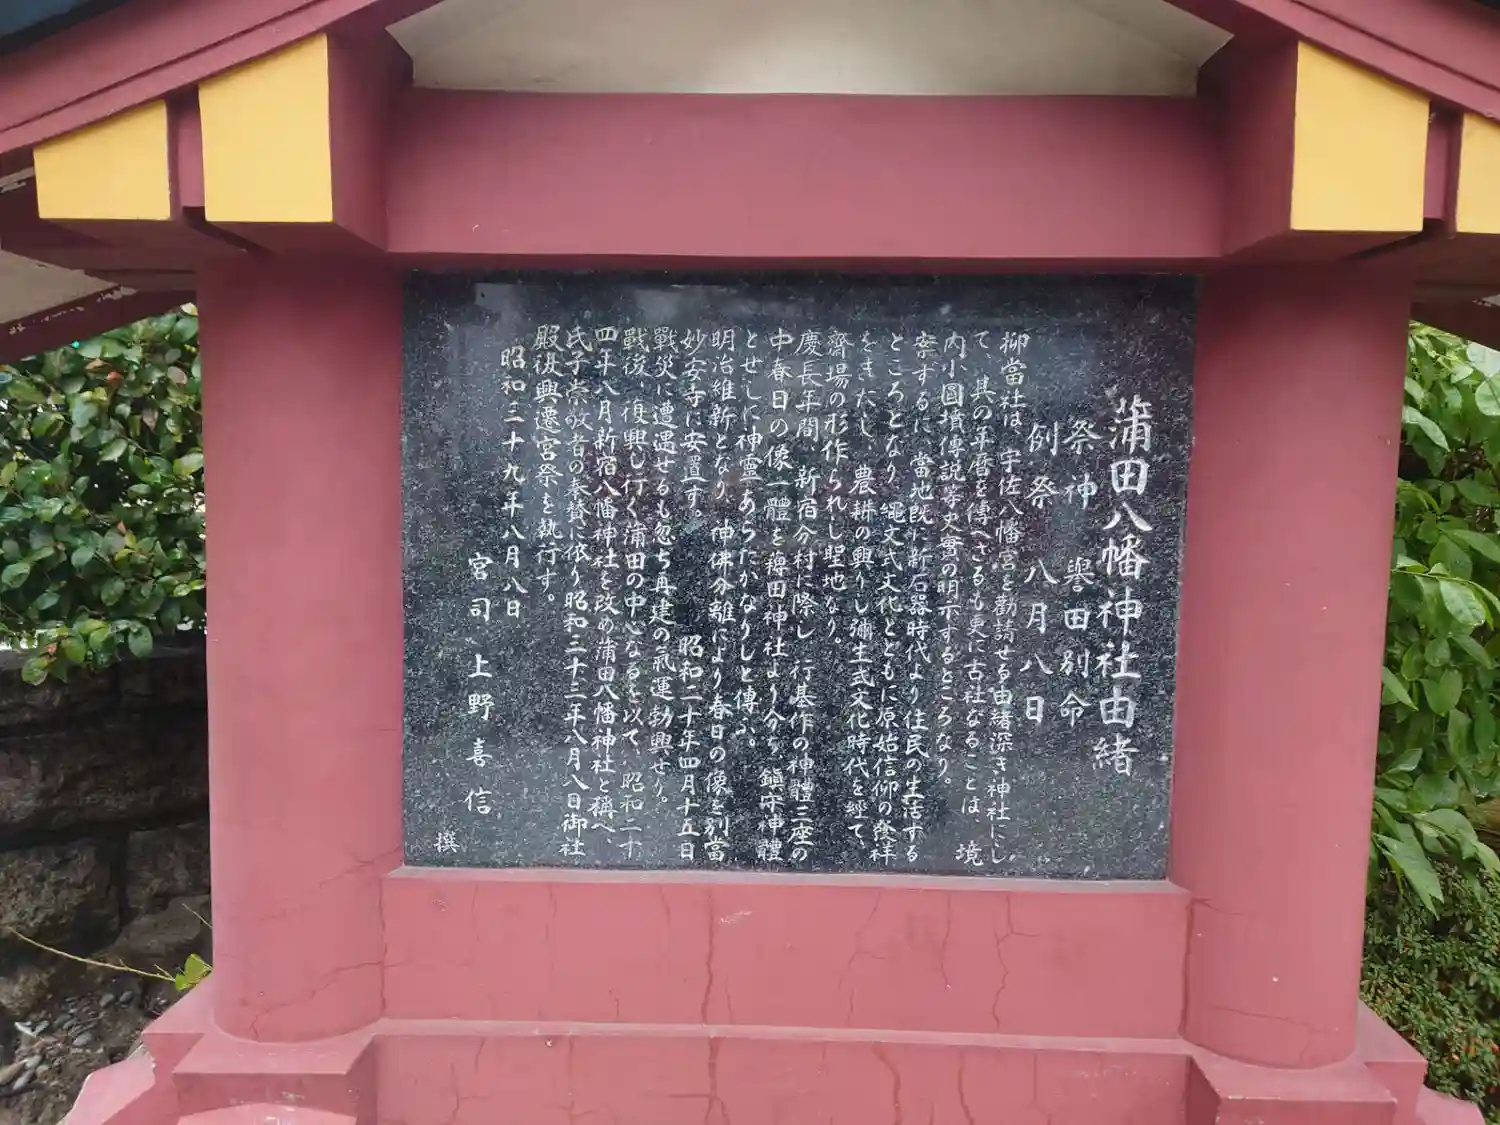 蒲田八幡神社由緒
祭神　譽田別命
例祭　八月八日
抑當社は、宇佐八幡宮を勸請せる由緒深き神社にし
て、其の年暦を傳へざるも更に古社なることは、境
内小圓墳傳説等史實の明示するところなり。
案ずるに、當地既に新石器時代より住民の生活する
ところとなり、縄文式文化とともに原始信仰の發祥
をきたし、農耕の興りし彌生式文化時代を經て、
齋場の形作られし聖地なり。
慶長年間、新宿分村に際し、行基作の神體三座の
中春日の像一體を薭田神社より分ち、鎭守神體
とせしに神靈あらたかなりしと傳ふ。
明治維新となり、神佛分離により春日の像を別當
妙安寺に安置す。　昭和二十年四月十五日
戰災に遭遇せるも忽ち再建の氣運勃興せり。
戰後、復興し行く蒲田の中心なるを以て、昭和二十
四年八月新宿八幡神社を改め蒲田八幡神社と稱へ、
氏子崇敬者の奉賛に依り昭和三十三年八月八日御社
殿復興遷宮祭を執行す。
昭和三十九年八月八日
宮司　上野喜信
撰